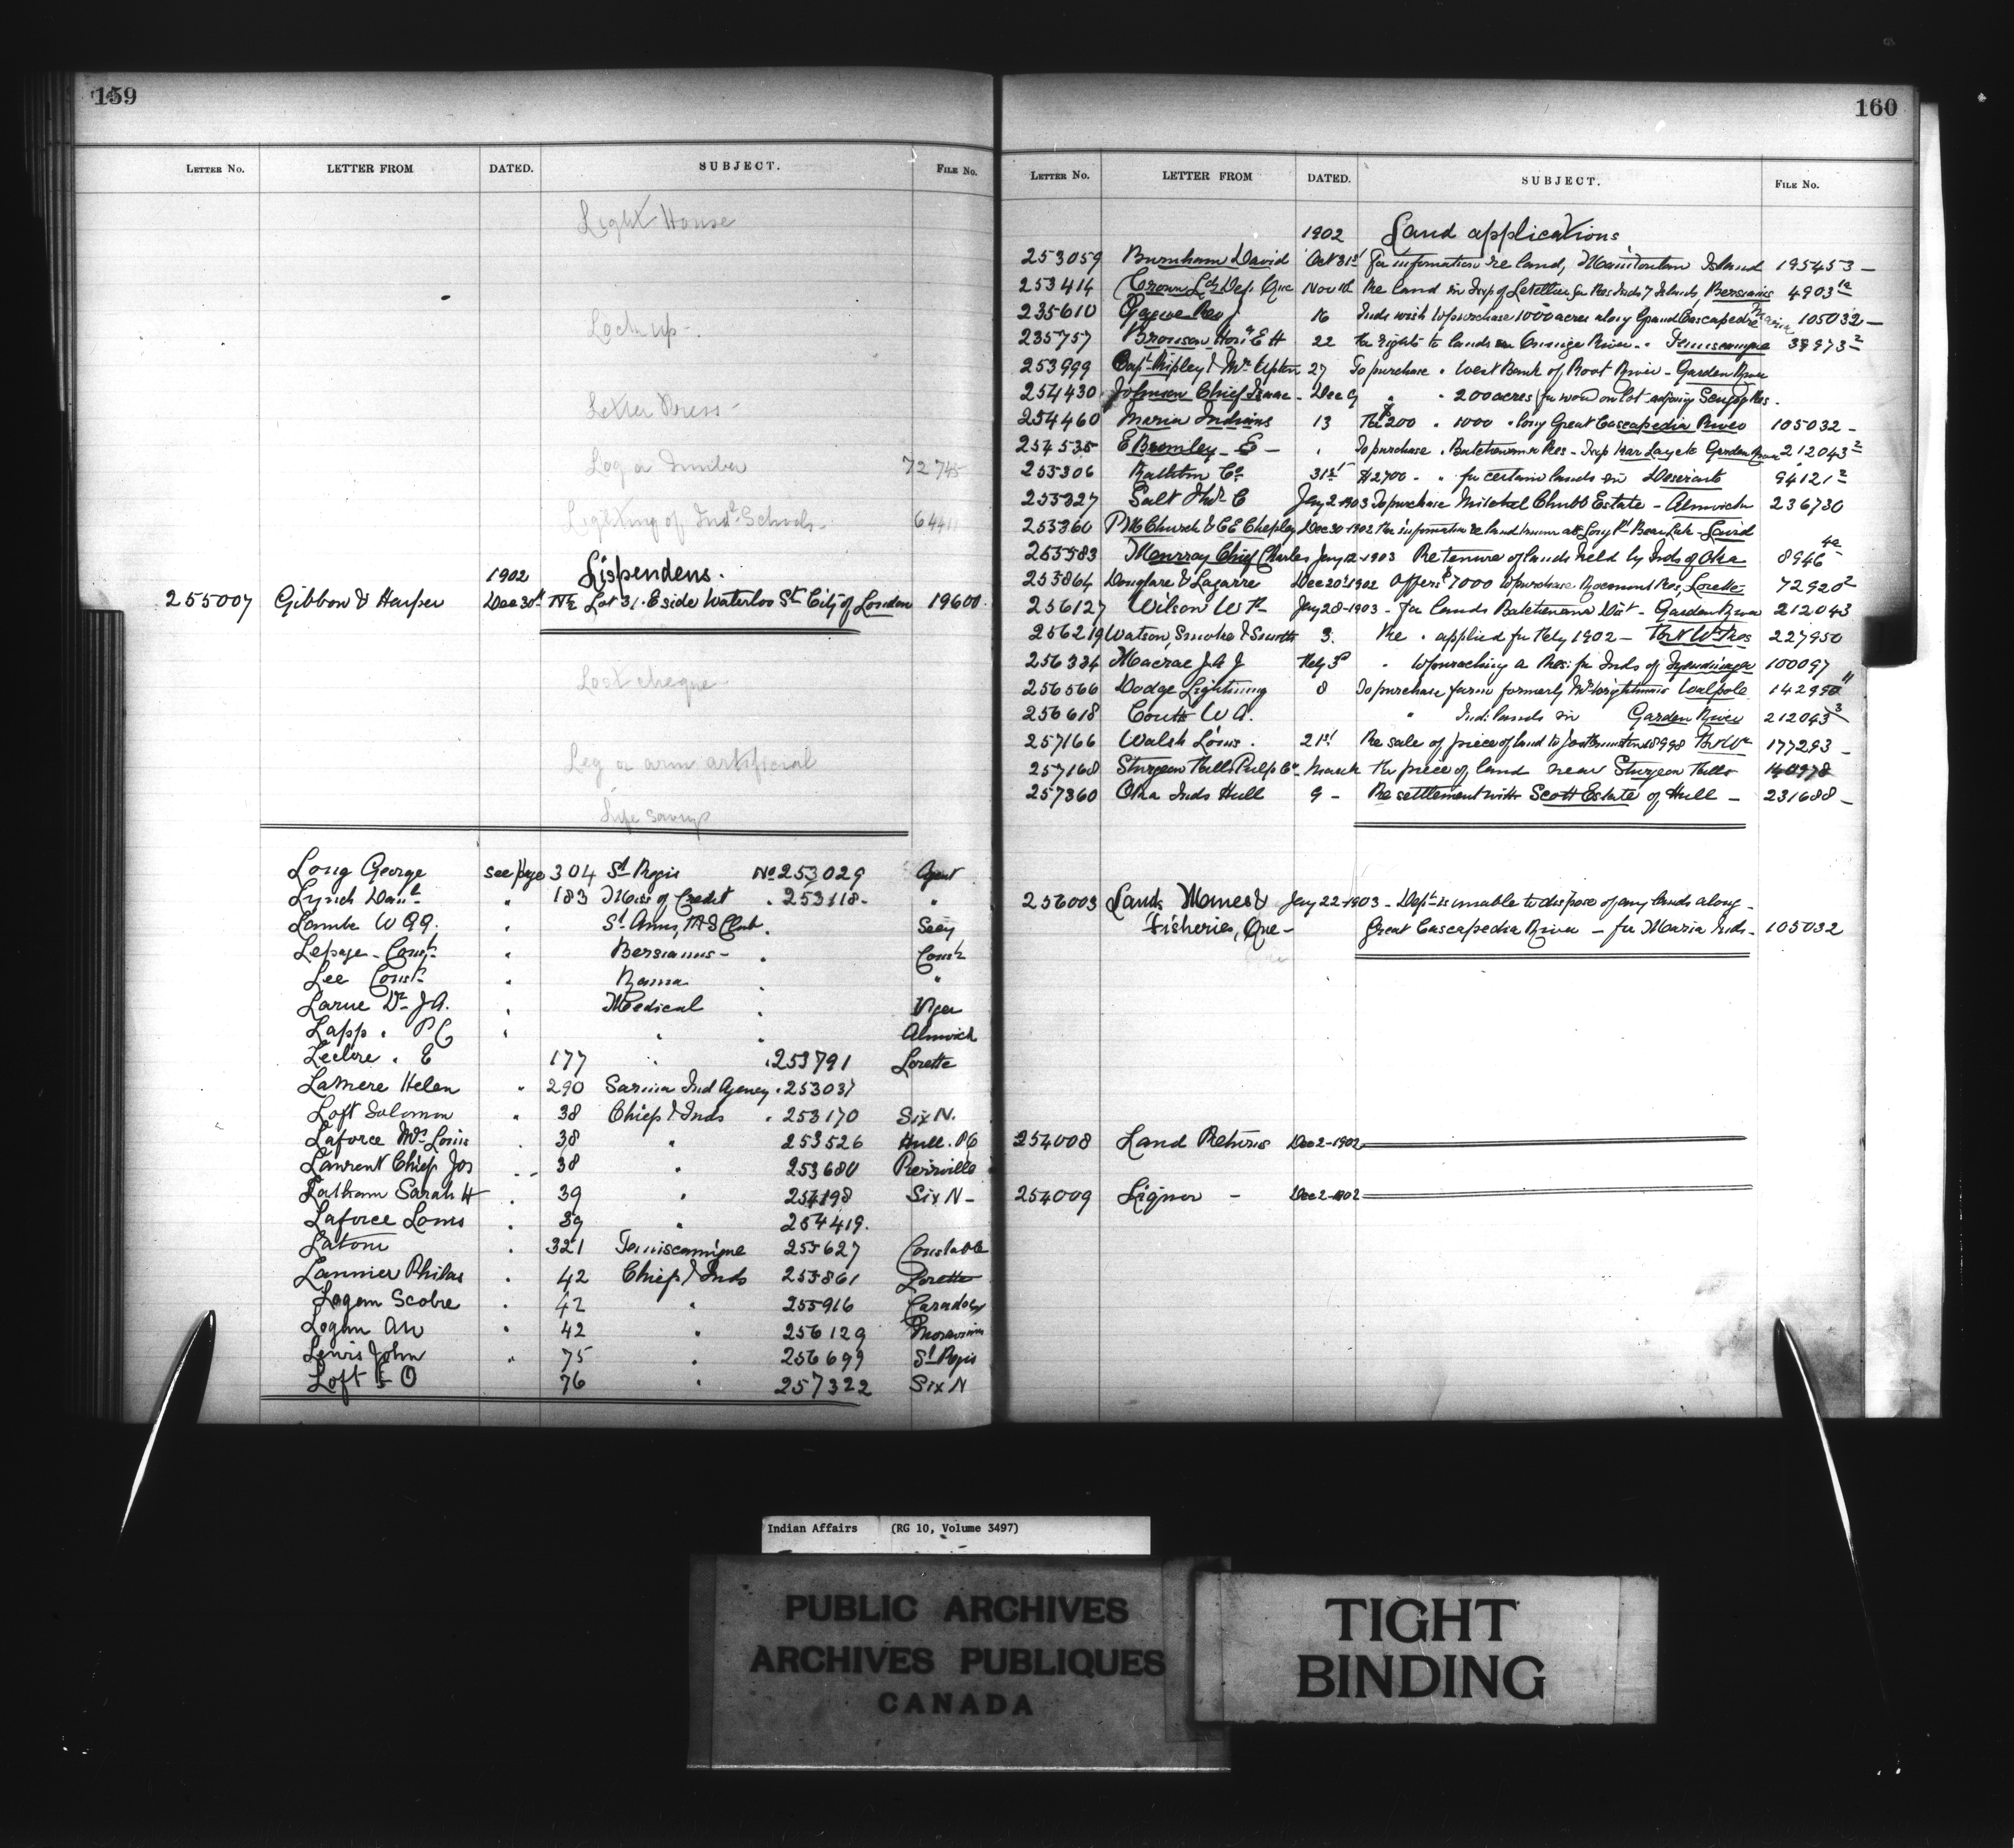 159
LETTER NO. LETTER FROM DATED. SUBJECT. FILE NO.
Light House
Lock up -
Letter Press -
Log or Timber 72745
Lighting of Indn Schools - 6441
1902 Lispendens.
255007 Gibbon & Harper Dec 30th N½ Lot 31. E side Waterloo St City of London 19600.
Lost cheque
Leg or arm artificial
Life saving
Long George see page 304 St Regis No 253029 Agent
Lynch Danl " 183 Miss of Credit . 253118 - "
Lamb W . St Anns, Club . Secy
Lepage - Const . Bersiamis - . Const
Lee Const . Rama "
Larue Dr J A. . Medical . Viger
Lapp . P C . . . Alnwick
Leclere . E 177 . . 253791 Lorette
Lamere Helen " 290 Sarnia Ind Agency . 253037
Loft Solomon " 38 Chiefs & Inds . 253170 Six N.
Laforce Mrs Louis . 38 " 253526 Hull. PQ
Laurent Chief Jos . - 38 . 253680 Pierrville
Latham Sarah H . 39 . 254198 Six N -
Laforce Louis . 39 . 254419.
Latour . 321 Temiscamigue 255627 Constable
Lannier Philas . 42 Chiefs & Inds 255861 Lorette
Logan Scobie . 42 . 255916 Caradoc
Logan . 42 . 256129 Moravian
Lewis John " 75 . 256699 St Regis
Loft O 76 . 257322 Six N
160
LETTER NO. LETTER FROM DATED. SUBJECT. FILE NO.
1902 Land applications
253059 Burnham David Oct 31st for information re land, Manitoulin Island 195453 -
253414 Crown Lds Dep. Que Nov Re land in Twp of Letellier for Res Inds 7 Islands, Bersiamis 4903
235610 Gagne Rev J 16 Inds wish to purchase 1000 acres along Grand Cascapedia Maria 105032 -
235757 Bronson Hon E H 22 Re rights to lands on River - Temiscamigue
253999 Capt Ripley & Mr Upton 27 To purchase . West Bank of Root River - Garden River
254430 Johnson Chief Isaac - Dec 9 " . 200 acres for wood on lot adjoing Scugog Res.
254460 Maria Indians 13 Re $200 . 1000 . along Great Cascapedia River 105032 -
254535 E Bromley - E - . To purchase . Batchewana Res - Twp Garden River 212043 2
255306 Rathbun Co 31st $2700 - . for certain lands in Deseronto 94121 2
255327 Salt Thos C Jany 2 1903 To purchase Mitchel Chubb Estate - Alnwick 236730
255360 P M Church & C E Chepley Dec 30-1902 for information re land Long Pt Bear Lake - Laird
255583 Murray Chief Charles Jany 12-1903 Re tenure of lands held by Inds of Oka 8946
255864 & Lagarre Dec 20th 1902 Offers $7000 to purchase Rocmont Res, Lorette 72920 2
256127 Wilson W Jany 28-1903 - for lands Batchewana Dist - Garden River 212043
256219 Watson, Smoke & Smith 3. Re . applied for Feby 1902 - 227950
256334 Macrae J A J Feby 3rd " a Res: for Inds of Tyendinaga 100097
256566 Dodge Lightning 8 To purchase farm formerly Mr Wrightmans Walpole 142990
256618 Coutts W A. " Ind. lands in Garden River 212043 3
257166 Walsh Louis . 21st Re sale of piece of land to 177293 -
257168 Sturgeon Falls Pulp Co - March Re piece of land near Sturgeon Falls
257360 Oka Inds Hull 9 - Re settlement with Scott Estate of Hull - 231688 -
256003 Lands Mines & Jany 22-1903 - Dept is unable to dispose of any lands along -
Fisheries, Que - Great Cascapedia River - for Maria Inds - 105032
254008 Land Returns Dec 2-1902
254009 Liquor - Dec 2-1902
Indian Affairs (RG 10, Volume 3497)
PUBLIC ARCHIVES
ARCHIVES PUBLIQUES
CANADA
TIGHT
BINDING